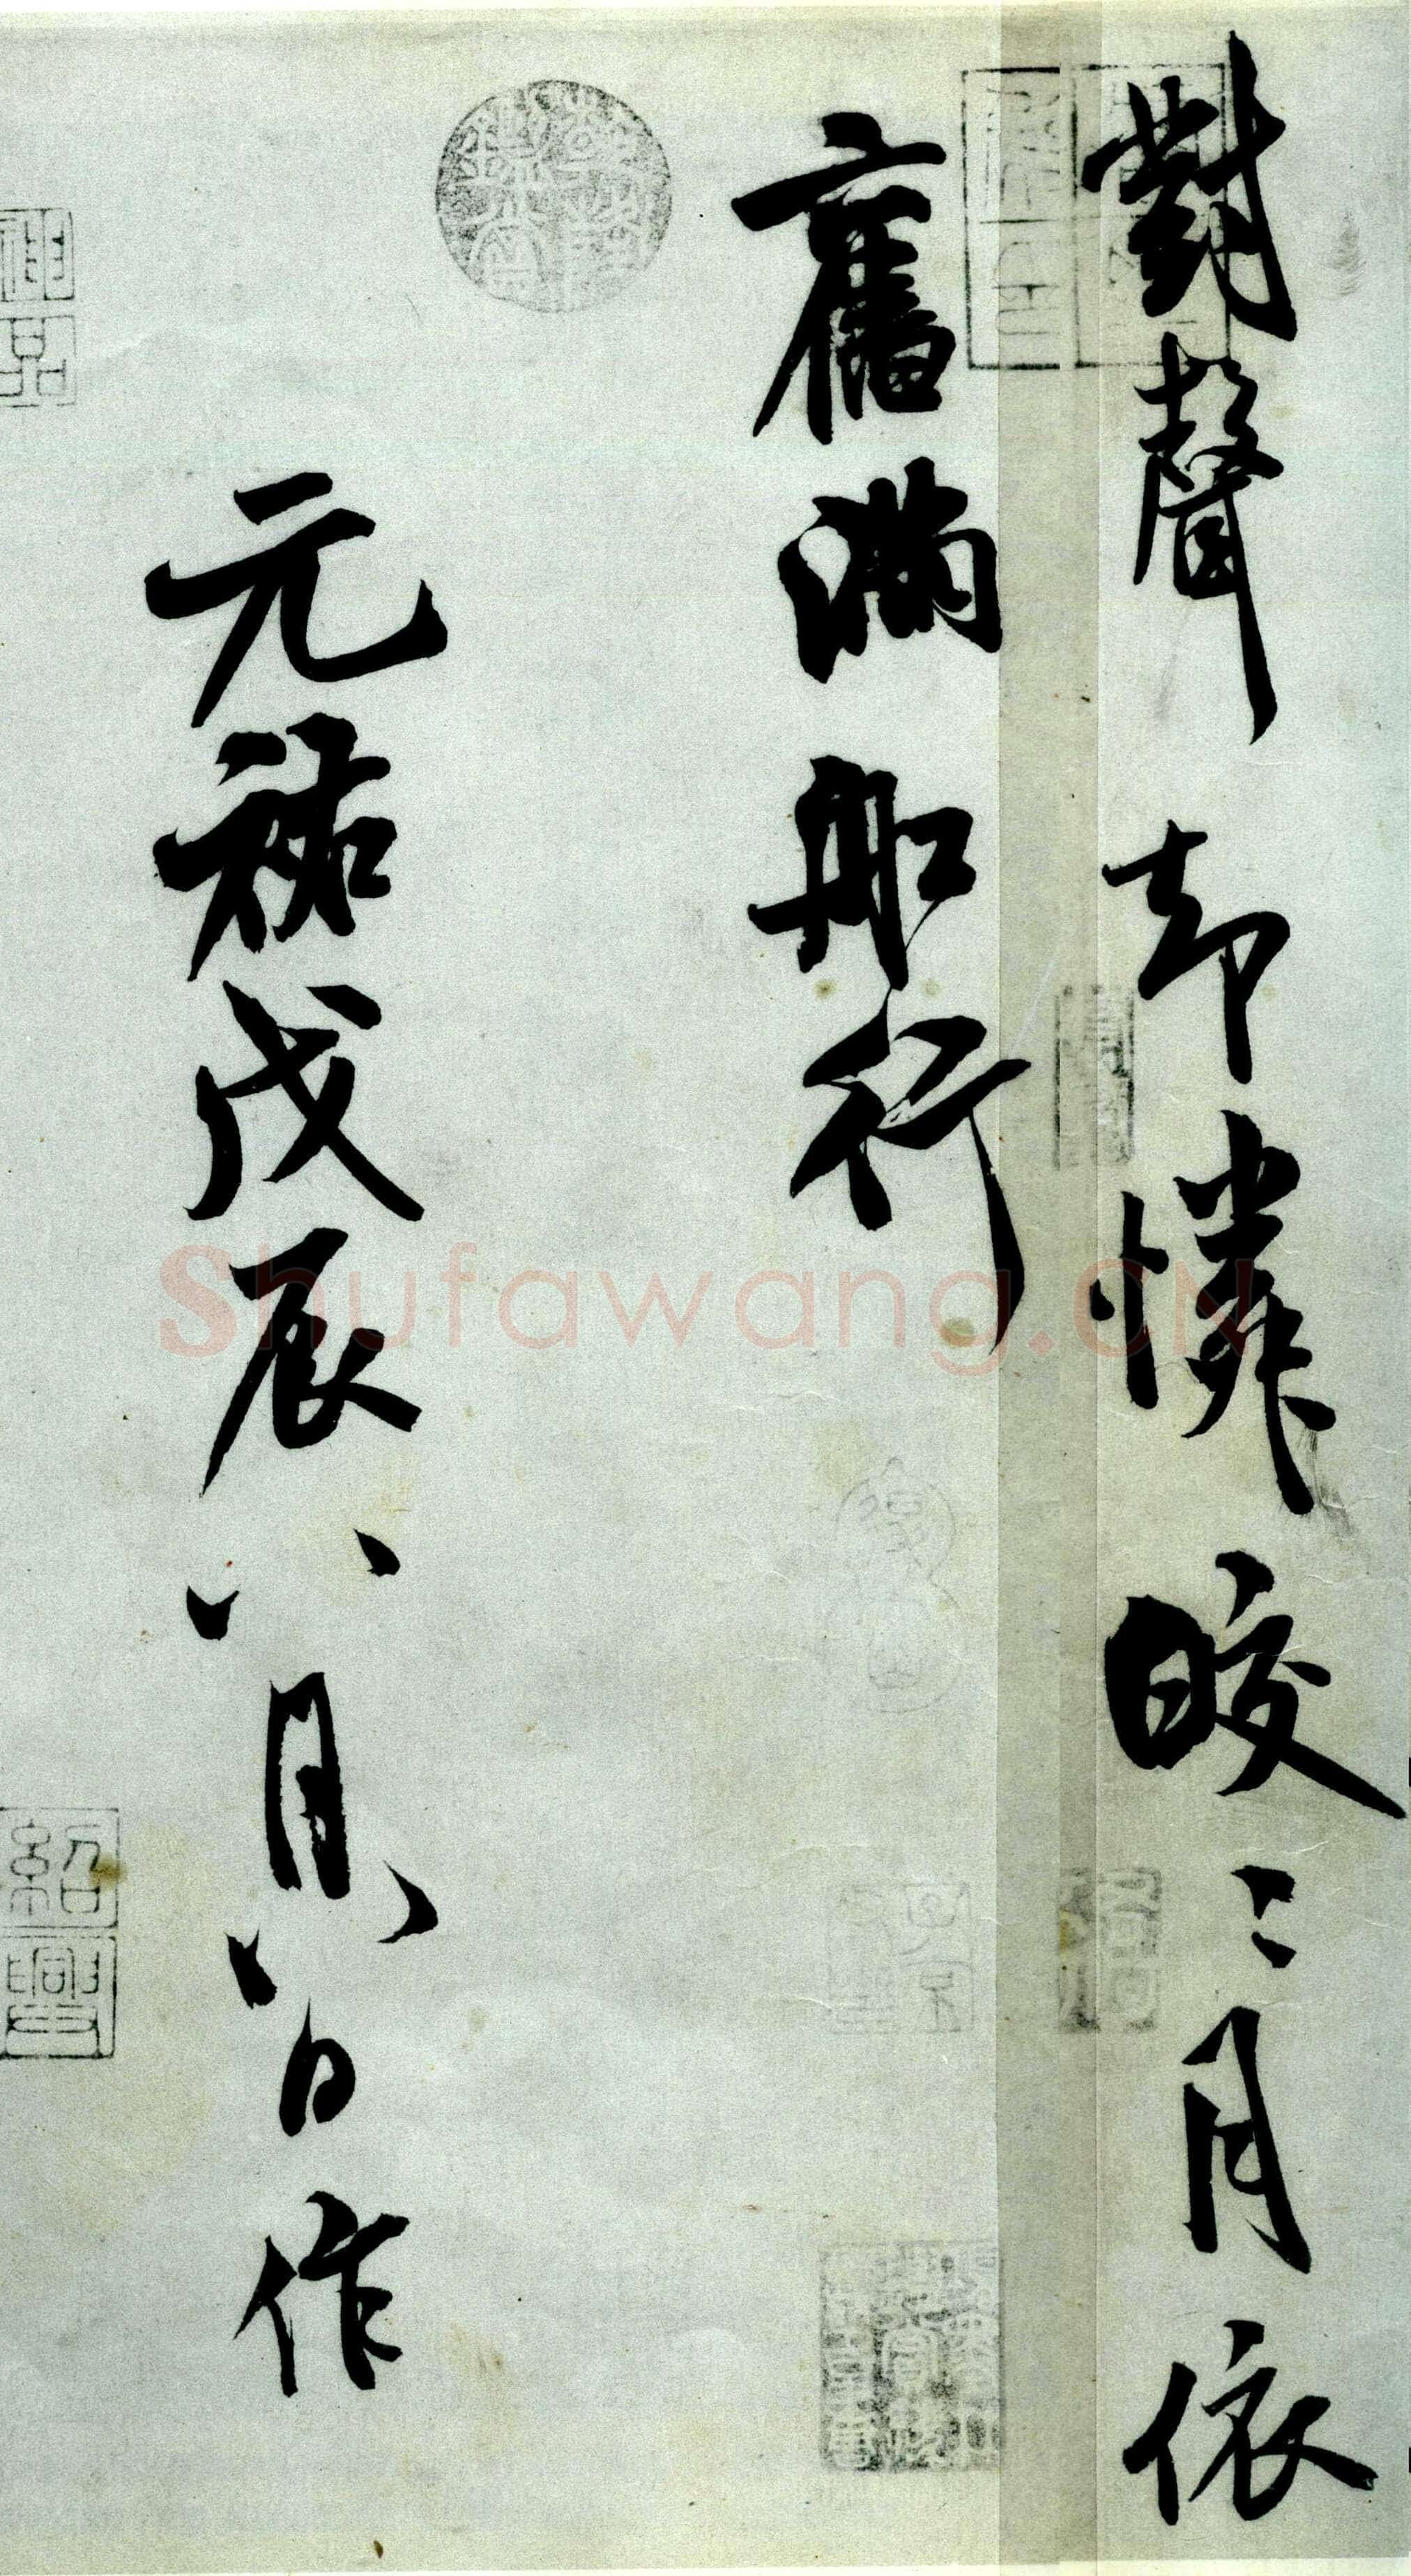 對聲却憐皎〻月依
舊滿船行
元祐戊辰八月八日作
紹興
神品
Shufawang.CN